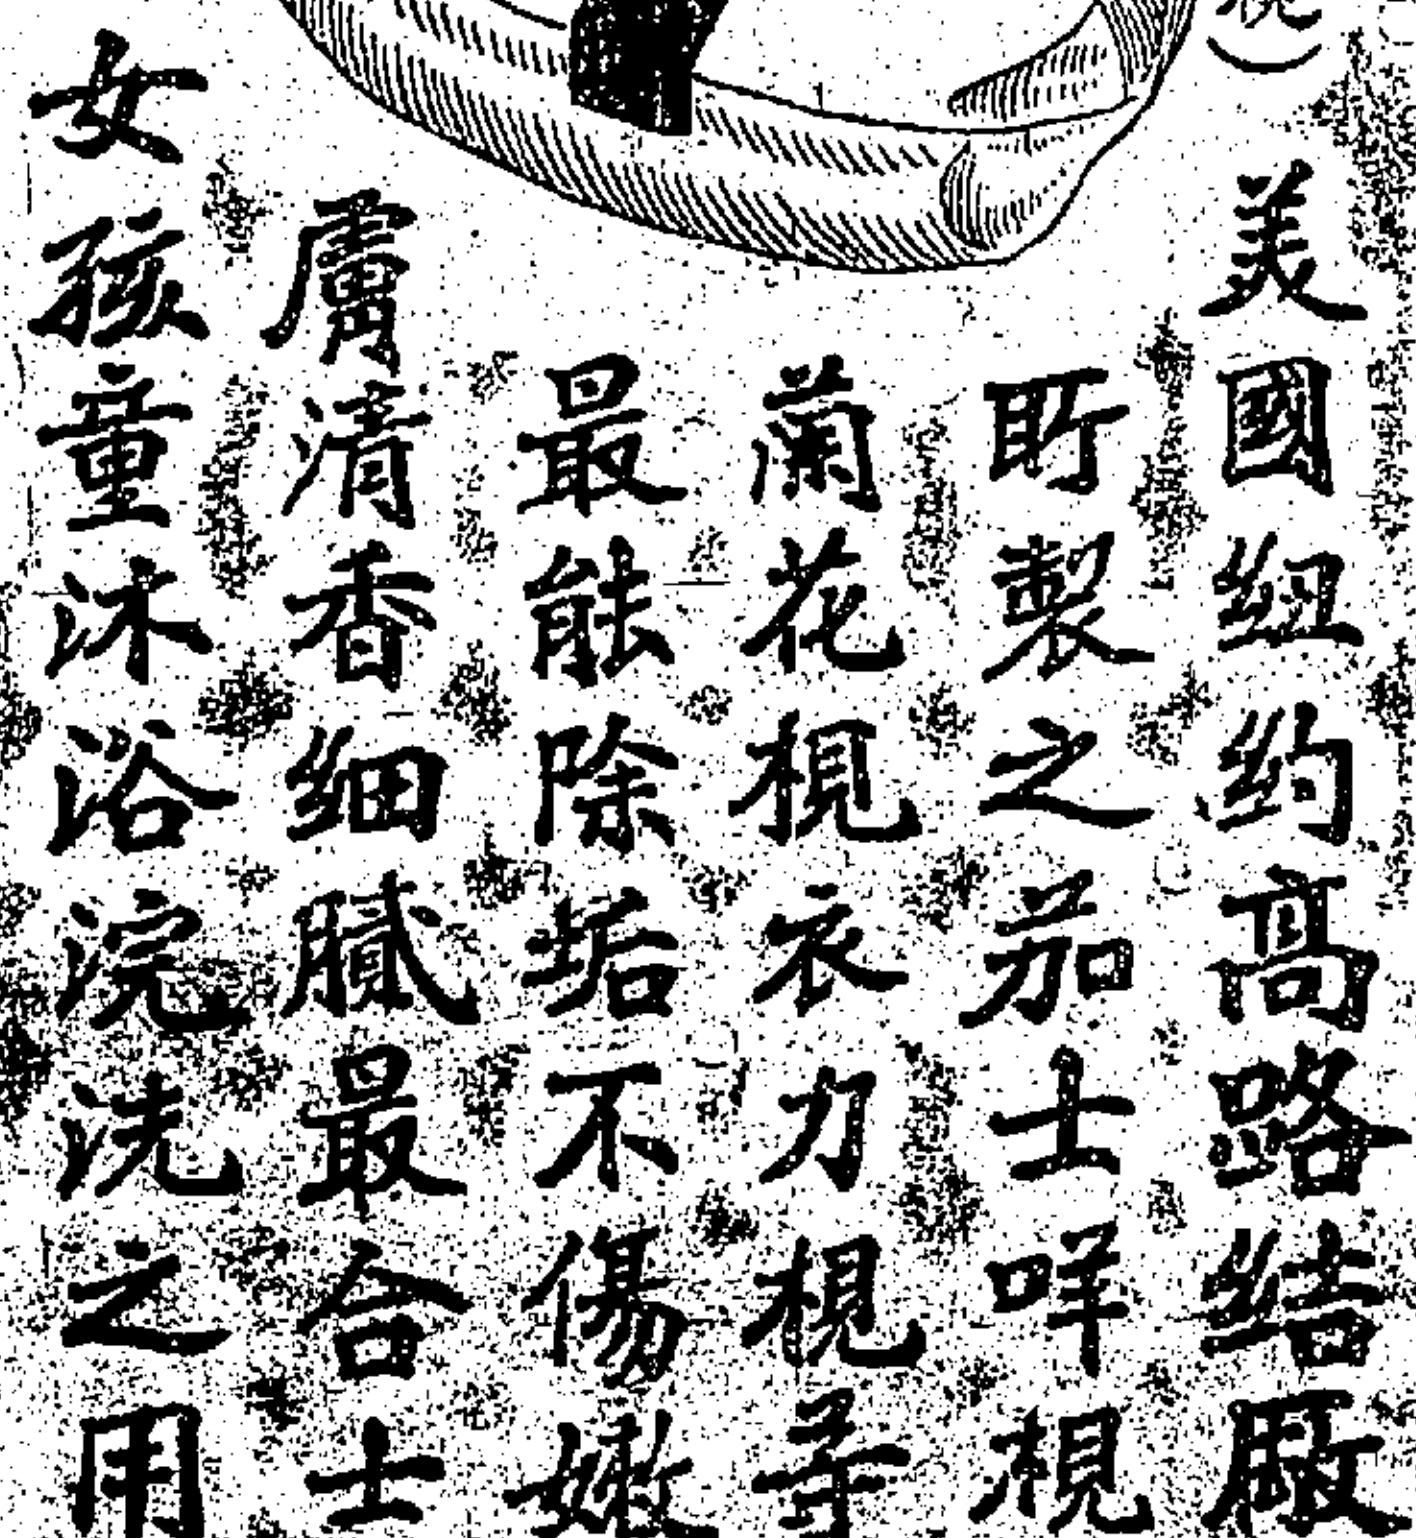 美國紐約高路結廠
所製之茄士咩梘
蘭花梘衣力梘等
最能除垢不傷嫩
膚清香細膩最合士
女孩童沐浴浣洗之用